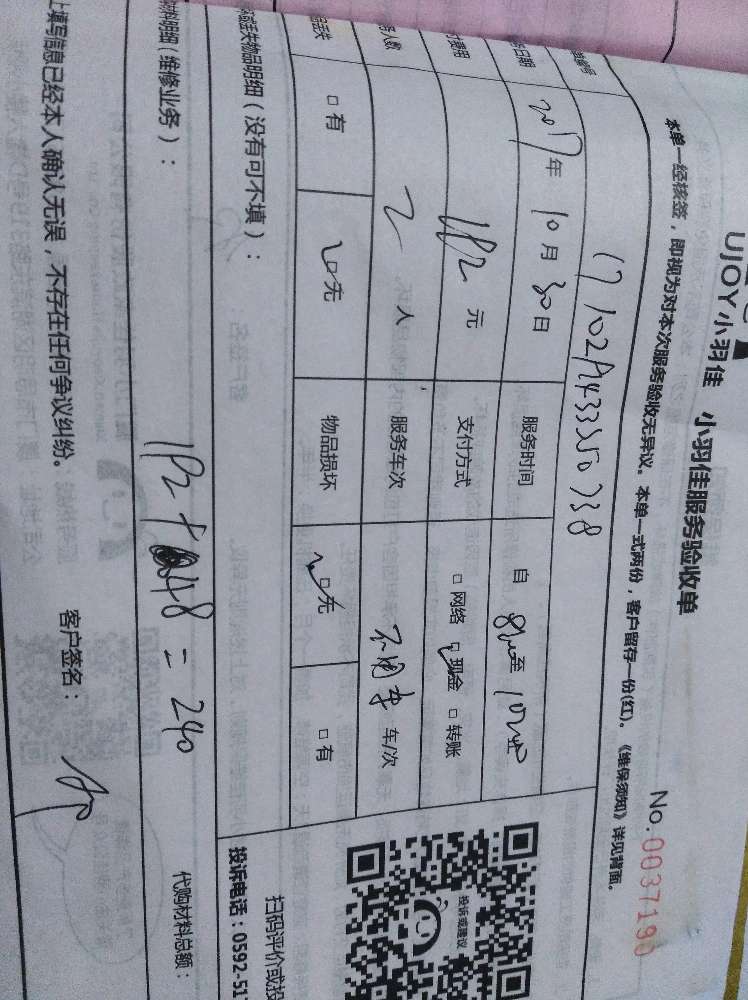 UJOY小羽佳 小羽佳服务验收单
No.0037190
本单一经核签，即视为对本次服务验收无异议。本单一式两份，客户留存一份(红)。《维保须知》详见背面。
编号
日期 2017年10月30日 服务时间 自 至
费用 192元 支付方式 □网络 □现金 □转账
人数 2人 服务车次 不用车 车/次
丢失 □有 □无 物品损坏 □无 □有
丢失物品明细（没有可不填）：
扫码评价或投
投诉或建议
投诉电话：0592-51
材料明细（维修业务）：
192+48=240
代购材料总额：
上填写信息已经本人确认无误，不存在任何争议纠纷。
客户签名：